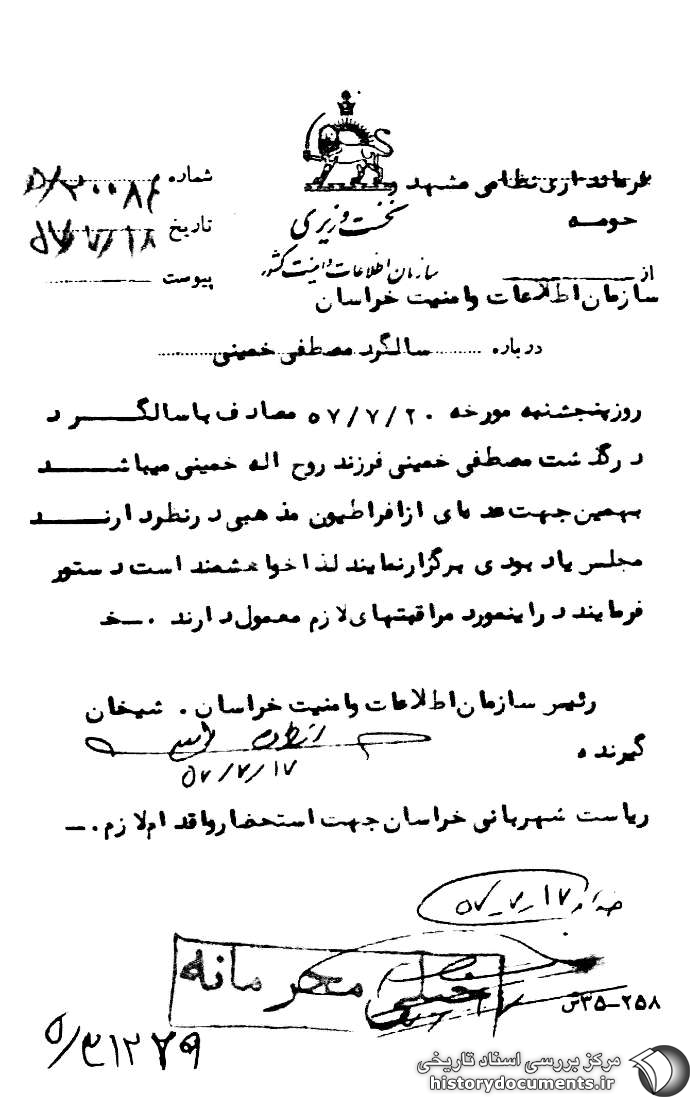 شماره ۵/۲۰۰۸۴
تاریخ ۵۷/۷/۱۸
پیوست
نخست وزیری
سازمان اطلاعات و امنیت کشور
فرمانداری نظامی مشهد و
حومه
از
سازمان اطلاعات وامنیت خراسان
درباره سالگرد مصطفی خمینی
روزپنجشنبه مورخه ۵۷/۷/۲۰ مصادف باسالگرد
درگذشت مصطفی خمینی فرزند روح اله خمینی میباشد
بهمین جهت عده ای ازافراطیون مذهبی درنظردارند
مجلس یادبودی برگزارنمایند لذا خواهشمند است دستور
فرمایند دراینمورد مراقبتهای لازم معمول دارند .ـ خ
رئیس سازمان اطلاعات وامنیت خراسان . شیخان
۵۷/۷/۱۷
گیرنده
ریاست شهربانی خراسان جهت استحضارواقدام لازم .ـ
۵۷-۷-۱۷
خیلی محرمانه
۲۵۸-۳۵ش
۵/۴۱۲۷۹
مرکز بررسی اسناد تاریخی
historydocuments.ir